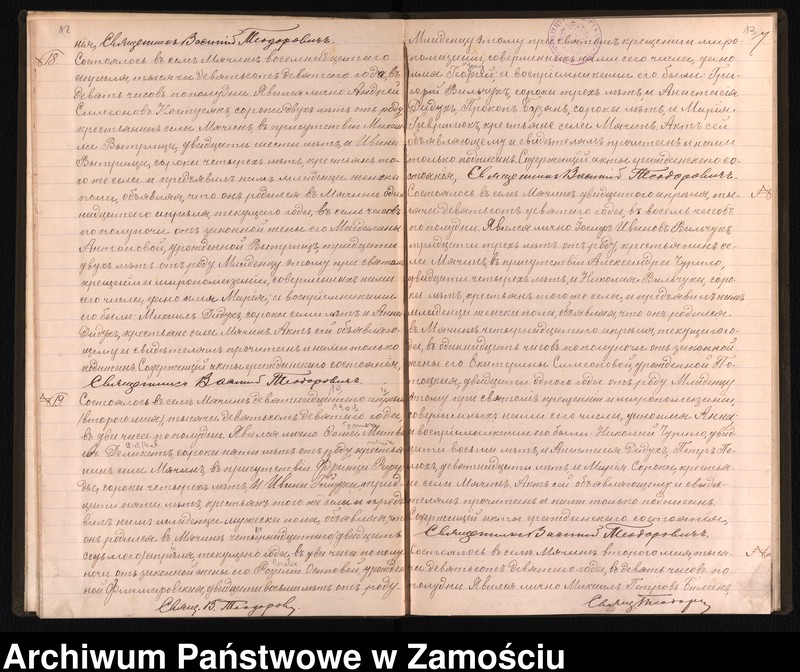 12
нія, Священникъ Василій Теодоровичъ.
№18
Состоялось въ селѣ Мячинѣ восемнадцатаго
апрѣля, тысяча девятьсотъ девятаго года, въ
девять часовъ пополудни. Явился лично Андрей
Симеоновъ сорока двухъ лѣтъ отъ роду
крестьянинъ села Мячина, въ присутствіи
двадцати шести лѣтъ и Ивана
сорока четырехъ лѣтъ, крестьянъ то-
го же села и предъявилъ намъ младенца женска
пола, объявляя, что онъ родился въ Мячинѣ один-
надцатаго апрѣля текущаго года, въ семь часовъ
по полуночи отъ законной жены его Магдалины
Антоновой, урожденной тридцати
двухъ лѣтъ отъ роду. Младенцу этому при святомъ
крещеніи и миропомазаніи, совершенныхъ нами
сего числа, дано имя Марія; а воспріемниками
его были: Михаилъ Дидухъ сорока семи лѣтъ и Анна
Дидухъ, крестьяне села Мячина. Актъ сей объявляю-
щему и свидѣтелямъ прочитанъ и нами только
подписанъ. Содержащій акты гражданскаго состоянія,
Священникъ Василій Теодоровичъ.
№19
Состоялось въ селѣ Мячинѣ девятнадцатаго апрѣля
(второго мая) тысяча девятьсотъ девятаго года,
въ два часа по полудни. Явился лично
сорока пяти лѣтъ отъ роду крестья-
нинъ села Мячина, въ присутствіи
сорока четырехъ лѣтъ, и Ивана трид-
цати пяти лѣтъ, крестьянъ того же села и предъя-
вилъ намъ младенца мужеска пола, объявляя, что
онъ родился въ Мячинѣ четырнадцатаго (двадцать
седьмого) апрѣля, текущаго года, въ два часа по полу-
ночи отъ законной жены его урожден-
ной двадцати восьми лѣтъ отъ роду.
Свящ. В. Теодоров
13
7
Младенцу этому при святомъ крещеніи и миро-
помазаніи, совершенныхъ нами сего числа, дано
имя Георгій; а воспріемниками его были: Гри-
горій Вильчукъ, сорока трехъ лѣтъ, и Анастасія
Дидухъ, Прокопъ сорока лѣтъ, и Марія
Гаврилюкъ, крестьяне села Мячина. Актъ сей
объявляющему и свидѣтелямъ прочитанъ и нами
только подписанъ. Содержащій акты гражданскаго со-
стоянія, Священникъ Василій Теодоровичъ.
Состоялось въ селѣ Мячинѣ двадцатаго апрѣля, ты-
сяча девятьсотъ девятаго года, въ восемь часовъ
по полудни. Явился лично Іосифъ Ивановъ Вильчукъ
тридцати трехъ лѣтъ отъ роду, крестьянинъ се-
ла Мячина, въ присутствіи Александра Чурило,
двадцати четырехъ лѣтъ, и Николая Вильчука, соро-
ка лѣтъ, крестьянъ того же села, и предъявилъ намъ
младенца женска пола, объявляя, что онъ родился
въ Мячинѣ четырнадцатаго апрѣля, текущаго го-
да, въ одиннадцать часовъ по полуночи отъ законной
жены его Екатерины Симеоновой, урожденной По-
тоцкая, двадцати одного года отъ роду. Младенцу
этому при святомъ крещеніи и миропомазаніи,
совершенныхъ нами сего числа, дано имя Анна;
а воспріемниками его были: Николай Чурило, двад-
цати восьми лѣтъ, и Анастасія Дидухъ, Петръ
девятнадцати лѣтъ, и Марія Сорока, крестья-
не села Мячина. Актъ сей объявляющему и свидѣ-
телямъ прочитанъ и нами только подписанъ.
Содержащій акты гражданскаго состоянія,
Священникъ Василій Теодоровичъ.
Состоялось въ селѣ Мячинѣ второго мая, тыся-
ча девятьсотъ девятаго года, въ девять часовъ по
полудни. Явился лично Михаилъ Петровъ
Свящ. Теодоров
Archiwum Państwowe w Zamościu